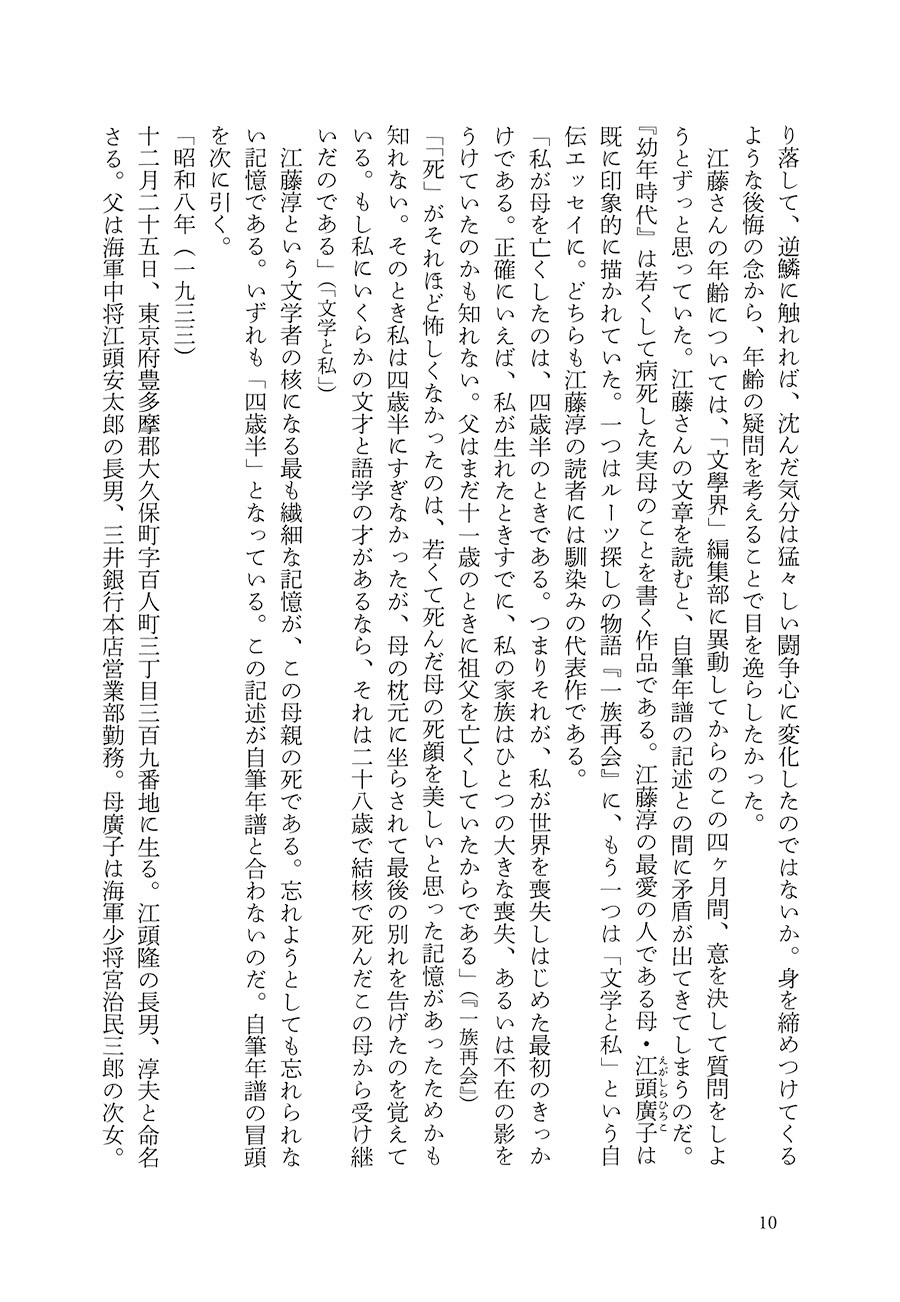 り落して、逆鱗に触れれば、沈んだ気分は猛々しい闘争心に変化したのではないか。身を締めつけてくる
ような後悔の念から、年齢の疑問を考えることで目を逸らしたかった。
　江藤さんの年齢については、「文學界」編集部に異動してからのこの四ヶ月間、意を決して質問をしよ
うとずっと思っていた。江藤さんの文章を読むと、自筆年譜の記述との間に矛盾が出てきてしまうのだ。
『幼年時代』は若くして病死した実母のことを書く作品である。江藤淳の最愛の人である母・江頭廣子は
えがしらひろこ
既に印象的に描かれていた。一つはルーツ探しの物語『一族再会』に、もう一つは「文学と私」という自
伝エッセイに。どちらも江藤淳の読者には馴染みの代表作である。
「私が母を亡くしたのは、四歳半のときである。つまりそれが、私が世界を喪失しはじめた最初のきっか
けである。正確にいえば、私が生れたときすでに、私の家族はひとつの大きな喪失、あるいは不在の影を
うけていたのかも知れない。父はまだ十一歳のときに祖父を亡くしていたからである」（『一族再会』）
「「死」がそれほど怖しくなかったのは、若くて死んだ母の死顔を美しいと思った記憶があったためかも
知れない。そのとき私は四歳半にすぎなかったが、母の枕元に坐らされて最後の別れを告げたのを覚えて
いる。もし私にいくらかの文才と語学の才があるなら、それは二十八歳で結核で死んだこの母から受け継
いだのである」（「文学と私」）
　江藤淳という文学者の核になる最も繊細な記憶が、この母親の死である。忘れようとしても忘れられな
い記憶である。いずれも「四歳半」となっている。この記述が自筆年譜と合わないのだ。自筆年譜の冒頭
を次に引く。
「昭和八年（一九三三）
十二月二十五日、東京府豊多摩郡大久保町字百人町三丁目三百九番地に生る。江頭隆の長男、淳夫と命名
さる。父は海軍中将江頭安太郎の長男、三井銀行本店営業部勤務。母廣子は海軍少将宮治民三郎の次女。
10